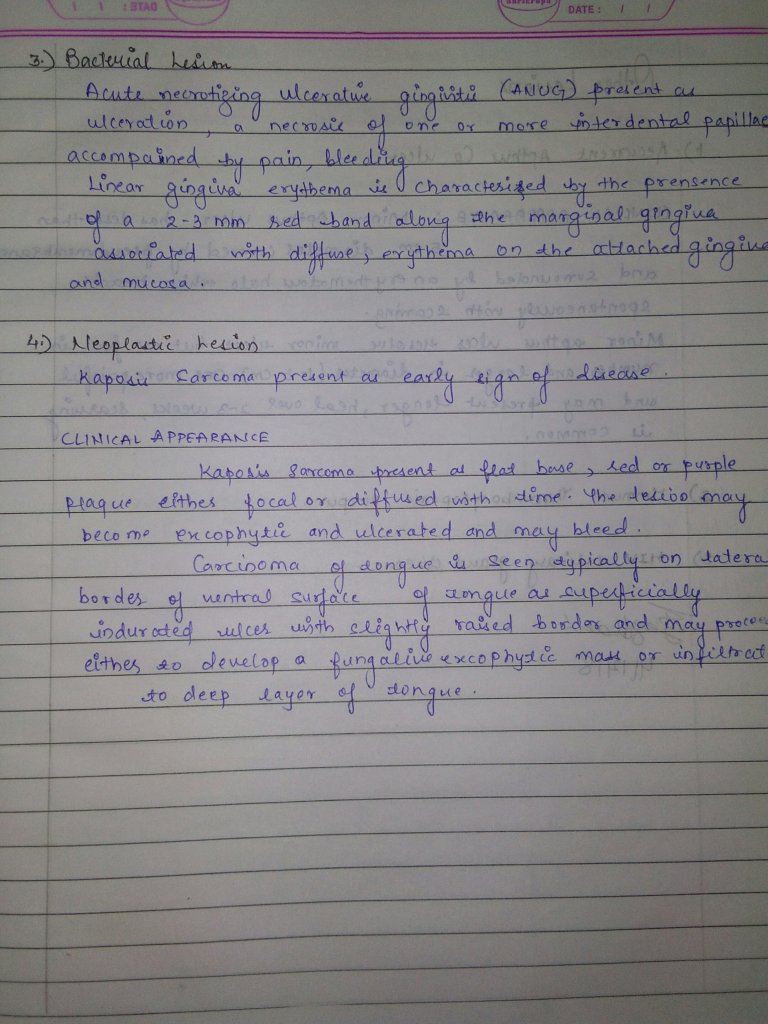 DATE : / /
3.) Bacterial Lesion
Acute necrotizing ulcerative gingivitis (ANUG) present as
ulceration, a necrosis of one or more interdental papillae
accompained by pain, bleeding
Linear gingiva erythema is characterisized by the prensence
of a 2-3 mm red band along the marginal gingiva
associated with diffuse, erythema on the attached gingiva
and mucosa.
4.) Neoplastic Lesion
Kaposis Sarcoma present as early sign of disease.
CLINICAL APPEARANCE
Kaposis Sarcoma present as flat base, red or purple
plaque either focal or diffused with time. The lesion may
become excophytic and ulcerated and may bleed.
Carcinoma of tongue is seen typically on latera
border of ventral surface of tongue as superficially
indurated ulcer with slightly raised border and may procee
either to develop a fungative excophytic mass or infiltrat
to deep layer of tongue.